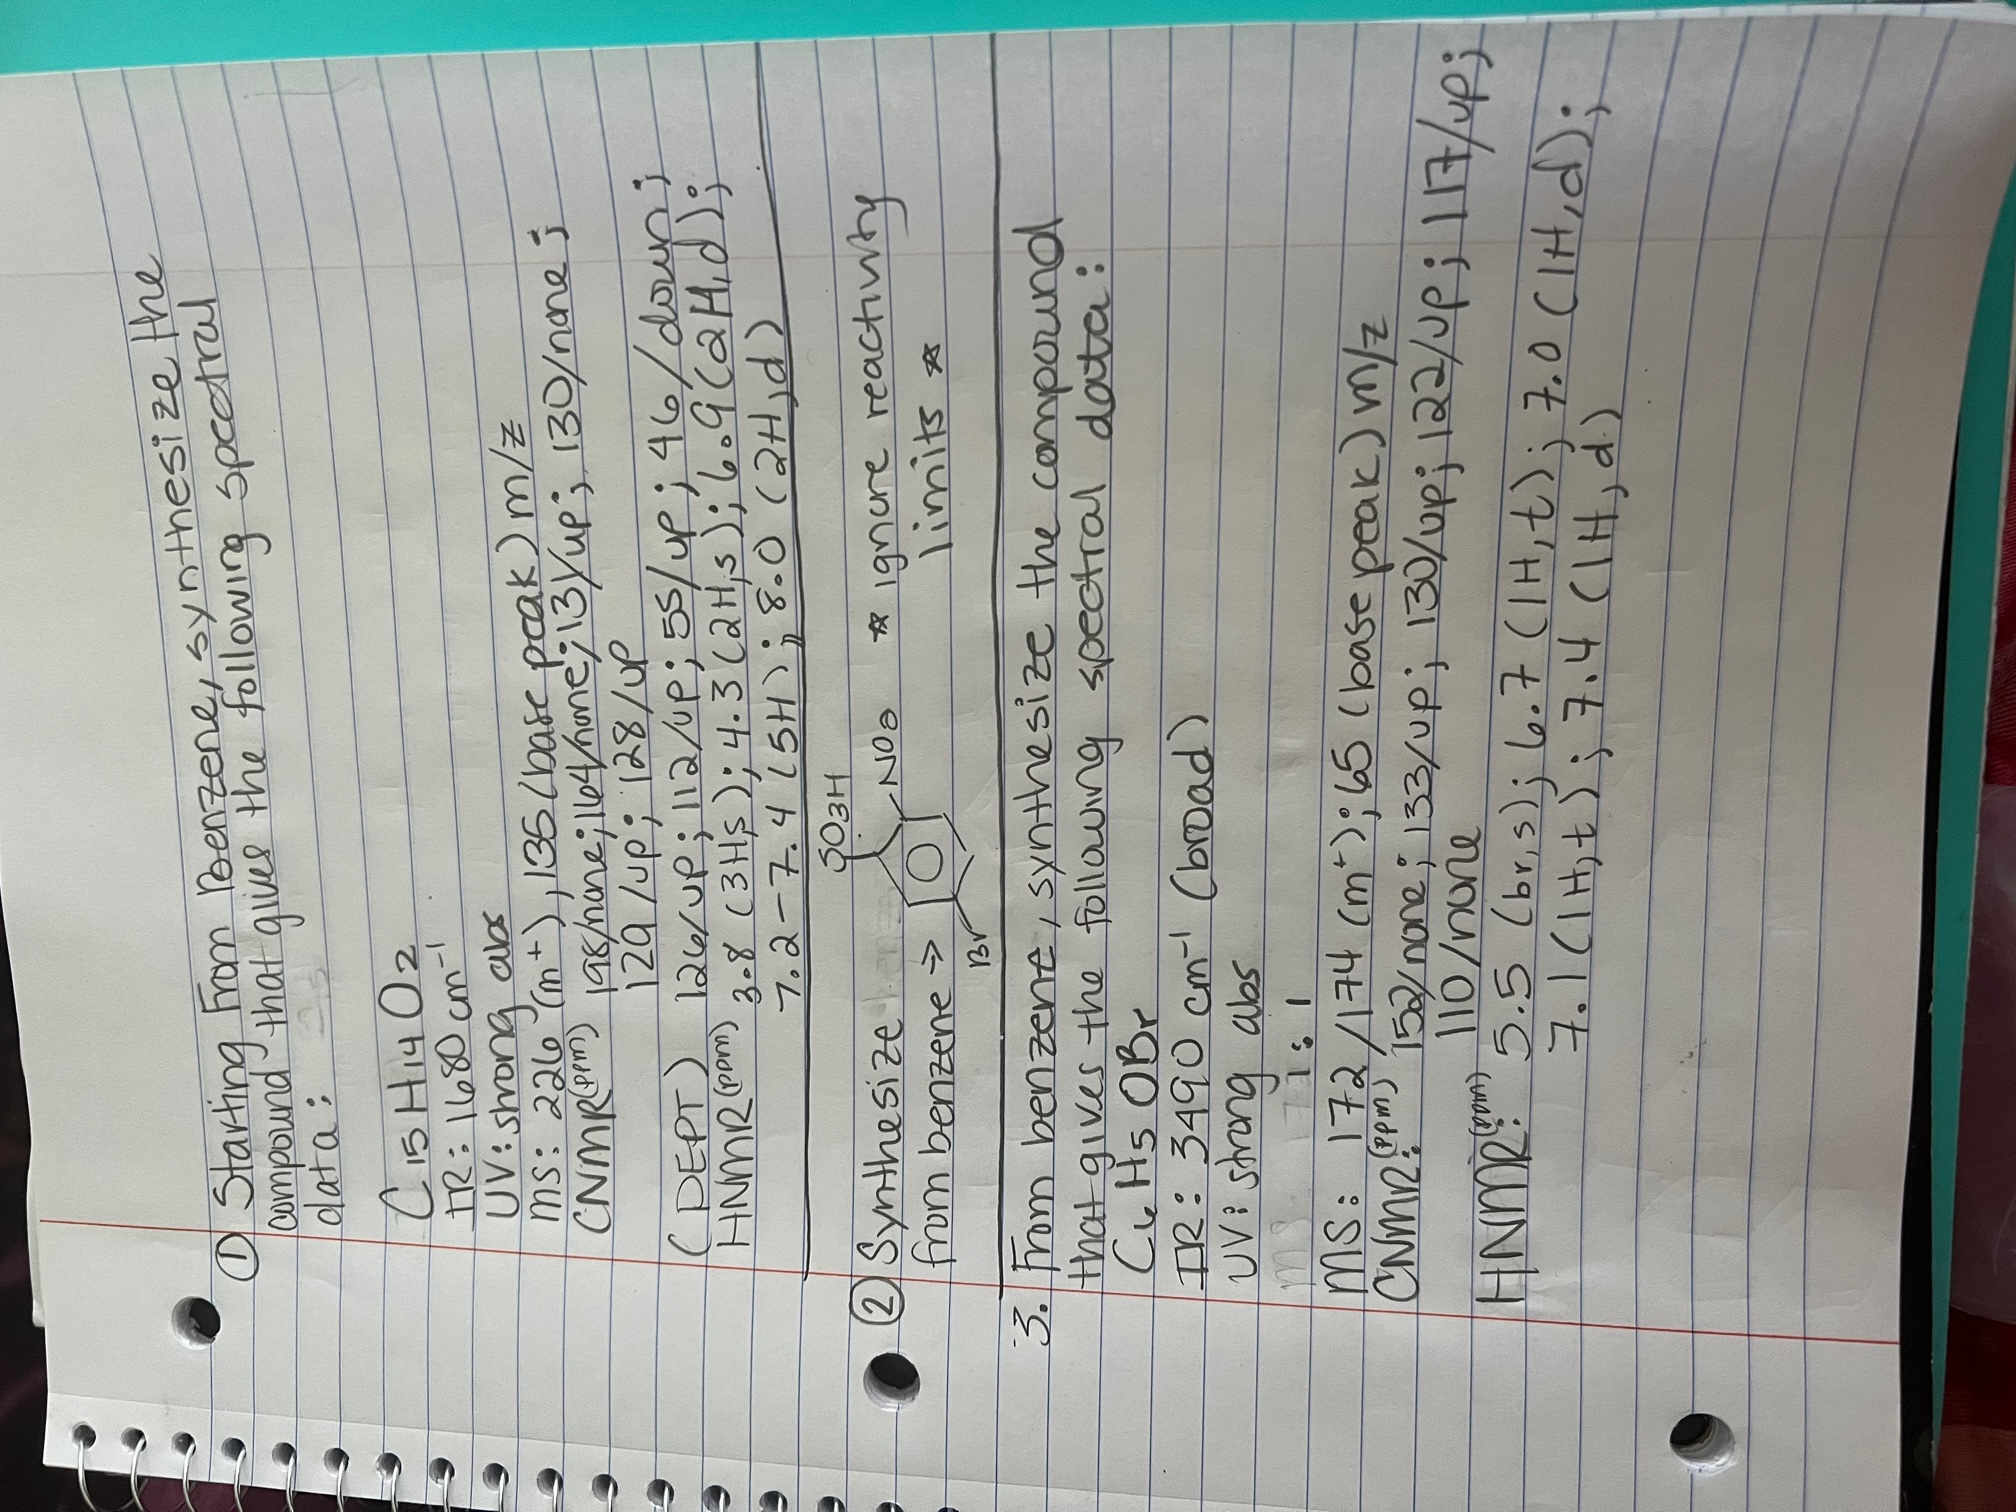 ① Starting From Benzene, synthesize the
compound that gives the following spectral
data:
C15H14O2
IR: 1680 cm-1
UV: strong abs
MS: 226 (m+), 135 (base peak) m/z
CNMR(ppm) 198/none; 164/none; 131/up; 130/none;
129/up; 128/up
(DEPT) 126/up; 112/up; 55/up; 46/down;
HNMR(ppm) 3.8 (3H,s); 4.3 (2H,s); 6.9 (2H,d);
7.2-7.4 (5H); 8.0 (2H,d)
SO3H
② Synthesize NO2 ☆ ignore reactivity
from benzene → limits ☆
Br
3. From benzene, synthesize the compound
that gives the following spectral data:
C6H5OBr
IR: 3490 cm-1 (broad)
UV: strong abs
1:1
MS: 172/174 (m+); 65 (base peak) m/z
CNMR:(ppm) 152/none; 133/up; 130/up; 122/up; 117/up;
110/none
HNMR:(ppm) 5.5 (br,s); 6.7 (1H,t); 7.0 (1H,d);
7.1 (1H,t); 7.4 (1H,d)